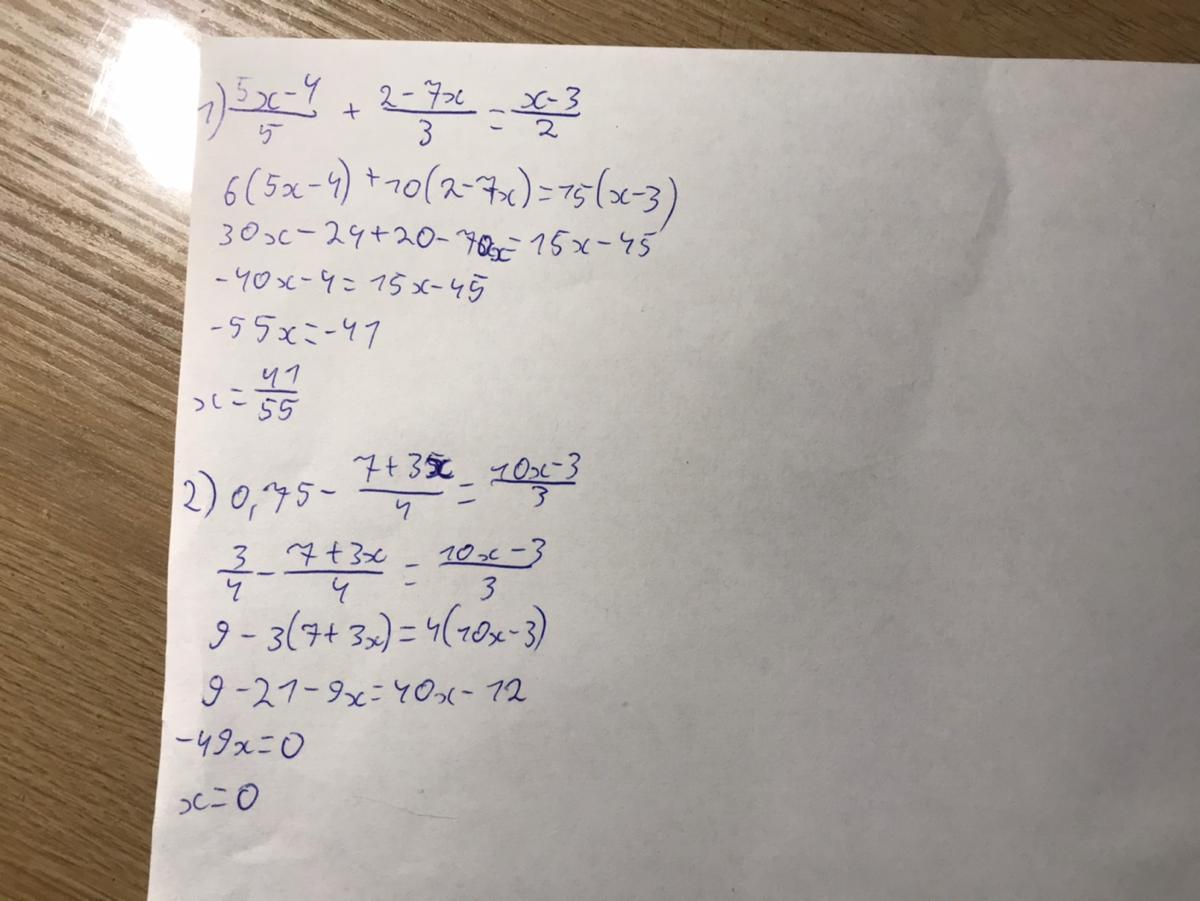 1) (5x-4)/5 + (2-7x)/3 = (x-3)/2
6(5x-4)+10(2-7x)=15(x-3)
30x-24+20-70x=15x-45
-40x-4=15x-45
-55x=-41
x=41/55
2) 0,75 - (7+3x)/4 = (10x-3)/3
3/4 - (7+3x)/4 = (10x-3)/3
9-3(7+3x)=4(10x-3)
9-21-9x=40x-12
-49x=0
x=0